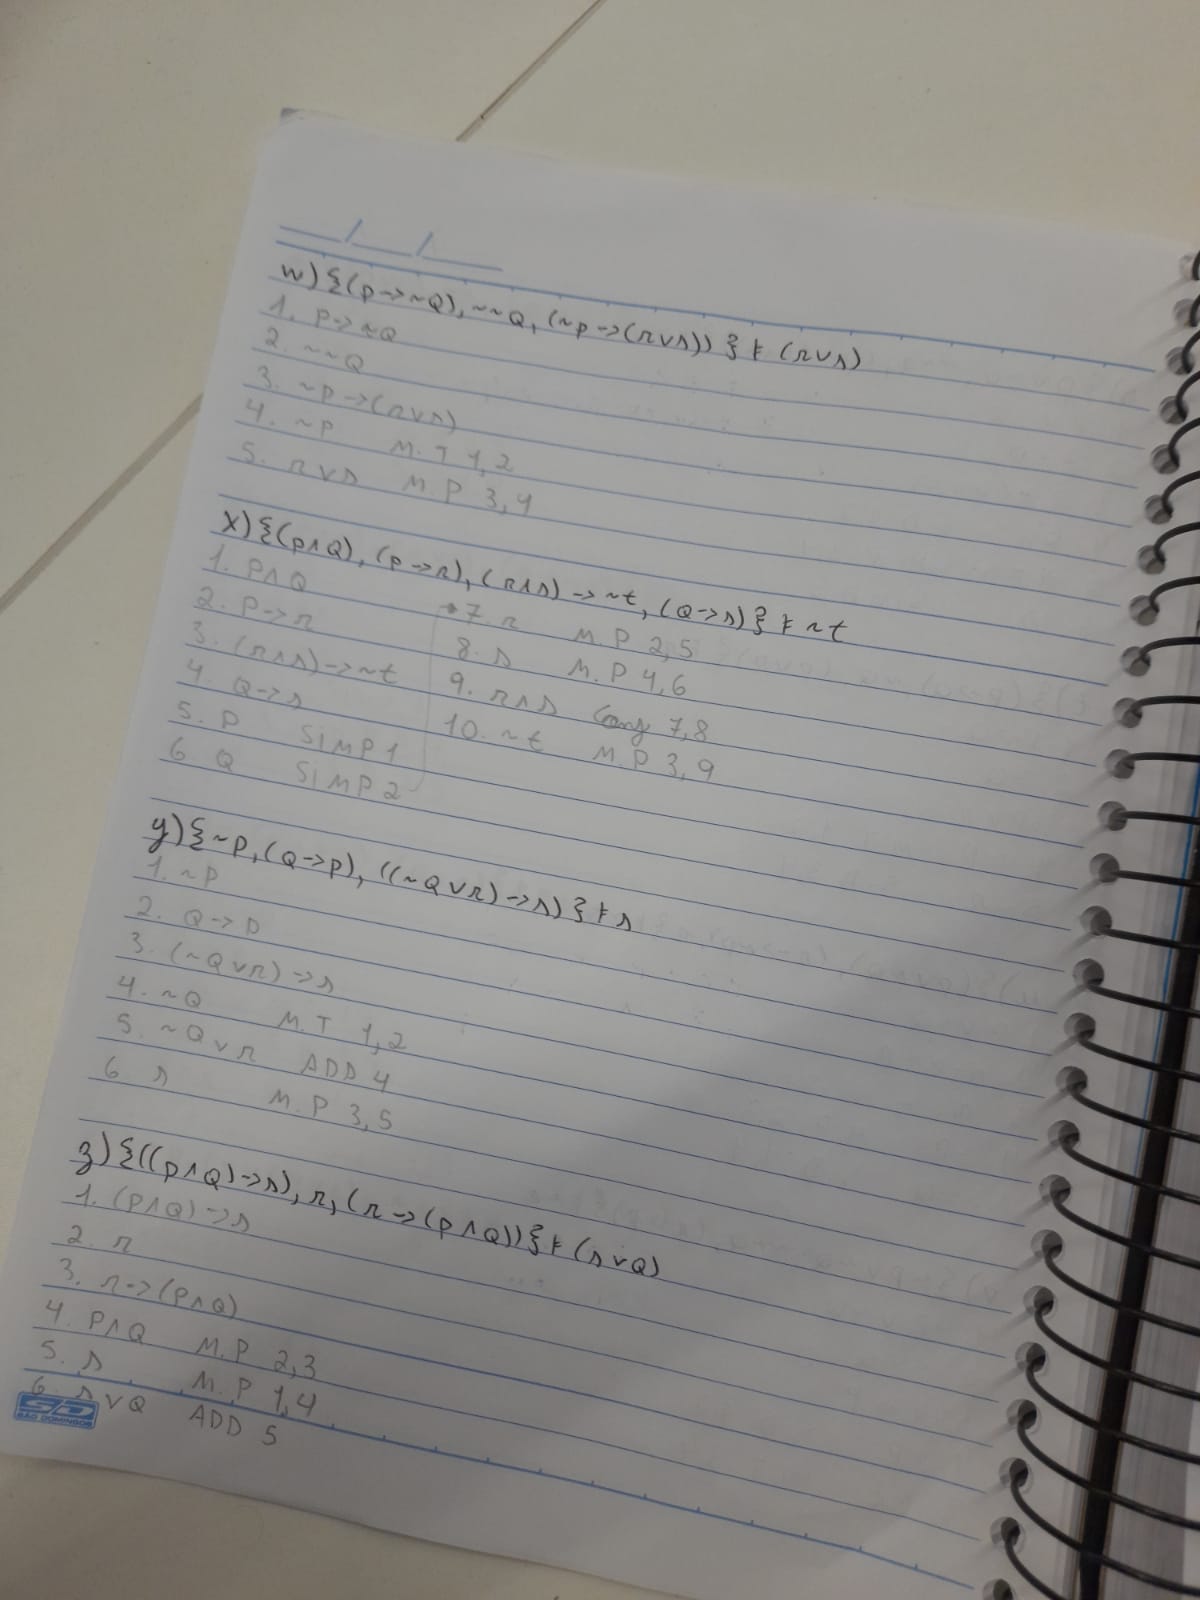 w) {(p->~Q), ~~Q, (~p->(r∨s)) } ⊧ (r∨s)
1. P->~Q
2. ~~Q
3. ~P->(r∨s)
4. ~P M.T 1,2
5. r∨s M.P 3,4
x) {(p∧Q), (p->r), (r∧s)->~t, (Q->s)} ⊧ ~t
1. P∧Q
2. P->r
3. (r∧s)->~t
4. Q->s
5. P SIMP 1
6 Q SIMP 2
7. r M.P 2,5
8. s M.P 4,6
9. r∧s Conj 7,8
10. ~t M.P 3,9
y) {~p, (Q->p), ((~Q∨r)->s) } ⊧ s
1. ~P
2. Q->P
3. (~Q∨r)->s
4. ~Q M.T 1,2
5. ~Q∨r ADD 4
6 s M.P 3,5
z) {((p∧Q)->s), r, (r->(p∧Q))} ⊧ (s∨Q)
1. (P∧Q)->s
2. r
3. r->(P∧Q)
4. P∧Q M.P 2,3
5. s M.P 1,4
6 s∨Q ADD 5
SD
SÃO DOMINGOS